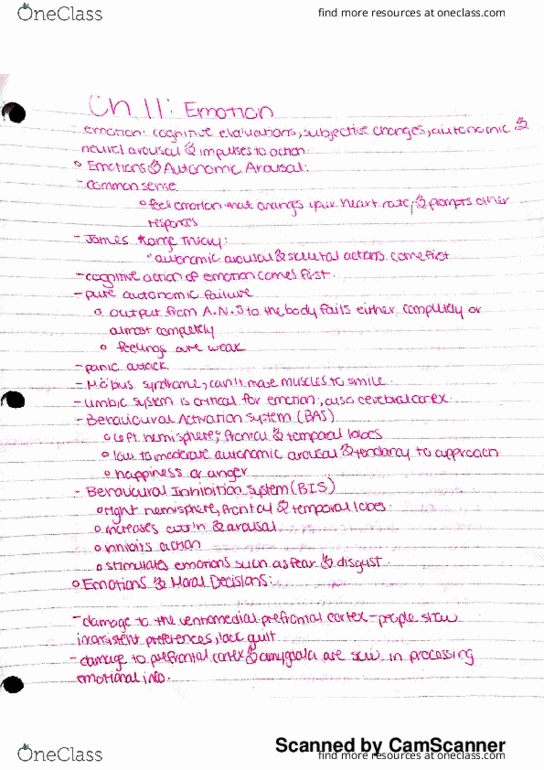 OneClass
find more resources at oneclass.com
Ch 11: Emotion
emotion: cognitive evaluations, subjective changes, autonomic &
neural arousal & impulses to action
Emotions & Autonomic Arousal:
- common sense
feel emotion that changes your heart rate, & prompts other
responses
- James Lange Theory:
autonomic arousal & skeletal actions come first
- cognitive action of emotion comes first
- pure autonomic failure
output from A.N.S to the body fails either completely or
almost completely
feelings are weak
- panic attack
- Möbius syndrome, can't move muscles to smile
- limbic system is critical for emotion, also cerebral cortex
- Behavioural Activation System (BAS)
left hemisphere, frontal & temporal lobes
low to moderate autonomic arousal & tendancy to approach
happiness or anger
- Behavioural Inhibition System (BIS)
right hemisphere, frontal & temporal lobes
increases att'n & arousal
inhibits action
stimulates emotions such as fear & disgust
Emotions & Moral Decisions:
- damage to the ventromedial prefrontal cortex - people show
inconsistent preferences, lack guilt
- damage to prefrontal cortex & amygdala are slow in processing
emotional info.
Scanned by CamScanner
OneClass
find more resources at oneclass.com